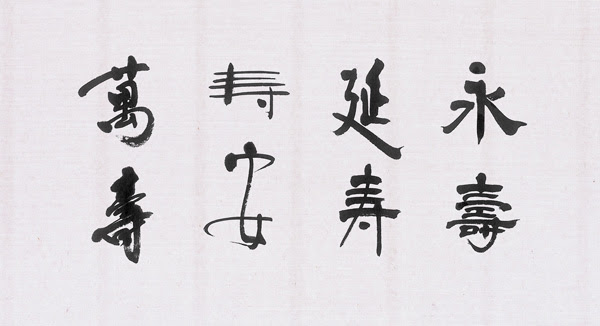 永壽
延寿
寿安
萬壽